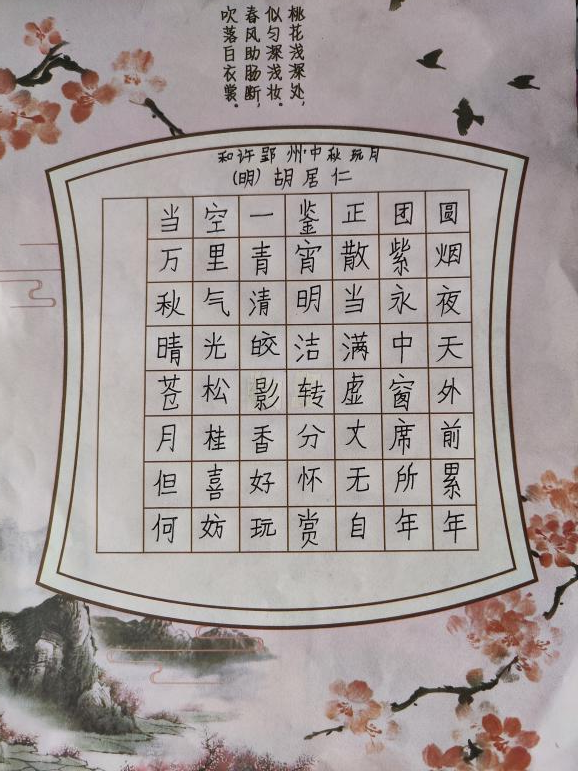 桃花浅深处，
似匀深浅妆。
春风助肠断，
吹落白衣裳。
和许郢州·中秋玩月
(明) 胡居仁
当空一鉴正团圆
万里青宵散紫烟
秋气清明当永夜
晴光皎洁满中天
苍松影转虚窗外
月桂香分丈席前
但喜好怀无所累
何妨玩赏自年年